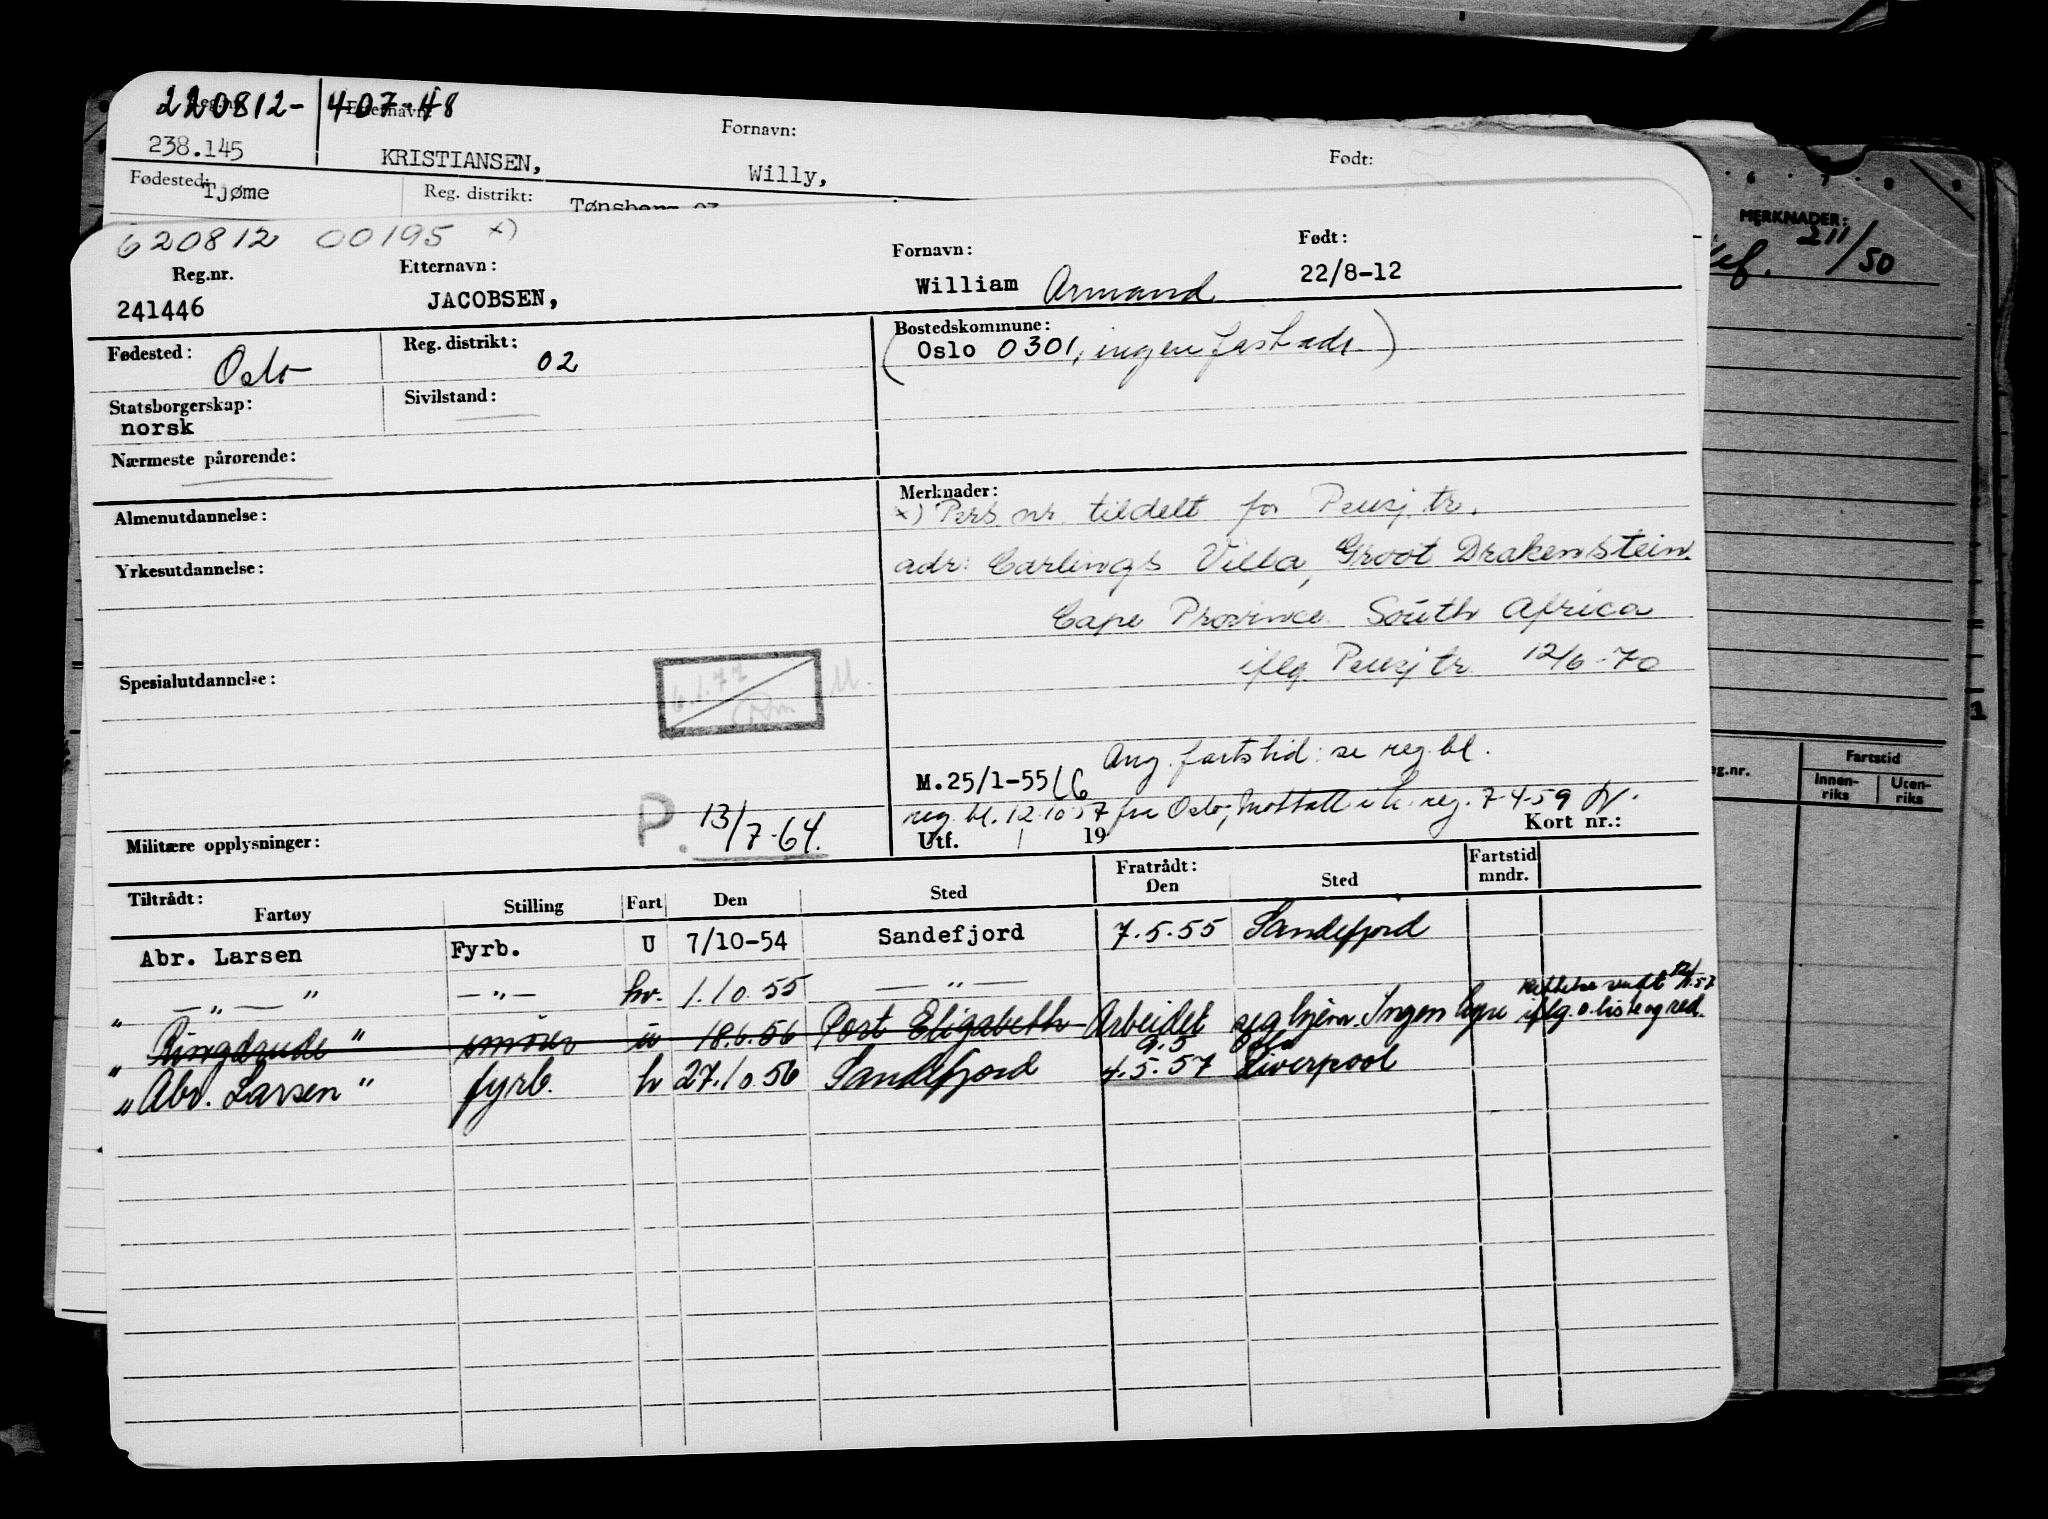 220812- 407-48
Reg.nr. Etternavn: Fornavn: Født:
238.145 KRISTIANSEN, Willy,
Fødested: Tjøme Reg. distrikt: Tønsberg 03
620812 00195 x)
Reg.nr. Etternavn: Fornavn: Født:
241446 JACOBSEN, William Armand 22/8-12
Fødested: Oslo Reg. distrikt: 02 Bostedskommune:
(Oslo 0301, ingen fast adr.)
Statsborgerskap: Sivilstand:
norsk
Nærmeste pårørende:
Almenutdannelse:
Merknader:
x) Pers. nr. tildelt for Pensj. tr.
Yrkesutdannelse:
adr: Carlings Villa, Groot Drakenstein.
Cape Province. South Africa
iflg. Pensj tr. 12/6-70
Spesialutdannelse:
6.1.77
Ang. fartstid: se reg. bl.
M.25/1-55
reg. bl. 12.10.57 fra Oslo, Mottatt i h. reg. 7-4-59
P. 13/7-64.
Militære opplysninger: Utf. / 19 Kort nr.:
Tiltrådt: Fratrådt: Fartstid mndr.
Fartøy Stilling Fart Den Sted Den Sted
Abr. Larsen Fyrb. U 7/10-54 Sandefjord 7.5.55 Sandefjord
" — " — " — " — hv. 1.10.55 — " —
" Ringdrude " smører u 18.6.56 Port Elizabeth Arbeidet seg hjem. Ingen hyre iflg. o. liste og red.
" Abr. Larsen " fyrb. h 27.10.56 Sandefjord 4.5.57 Liverpool
9.5
MERKNADER:
211/50
Fartstid
Innen-riks Uten-riks